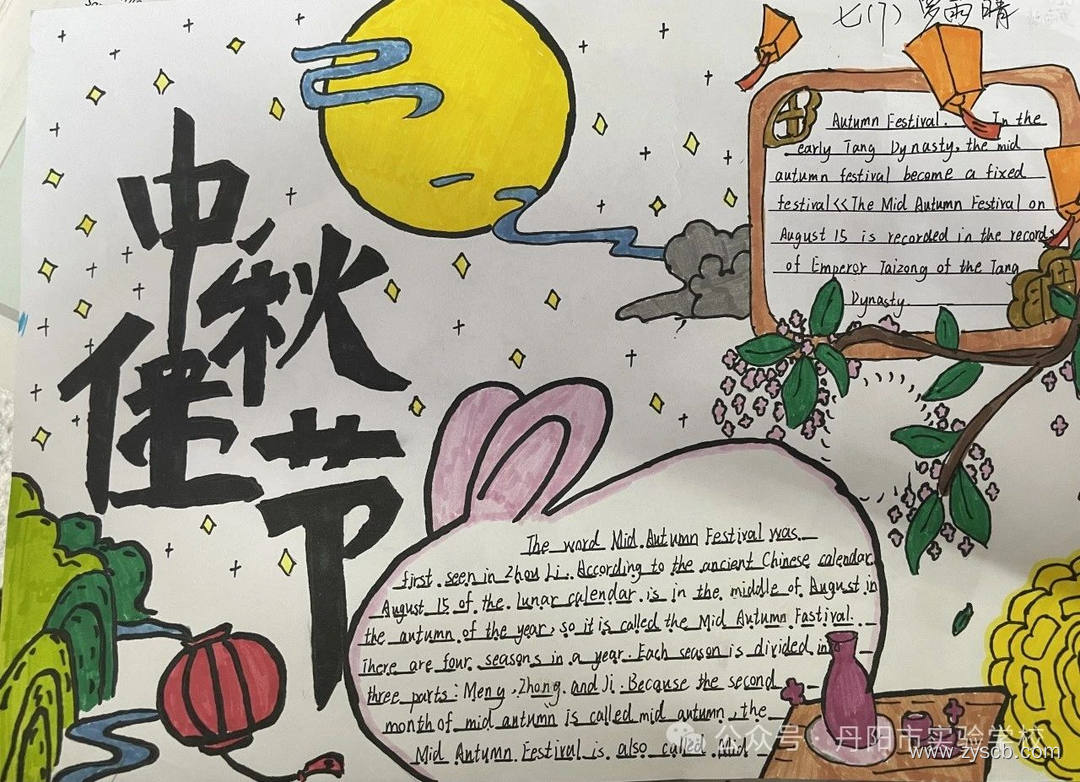 七(7) 罗雨晴
中秋佳节
Autumn Festival. In the
early Tang Dynasty, the mid
autumn festival become a fixed
festival<<The Mid Autumn Festival on
August 15 is recorded in the records
of Emperor Taizong of the Tang
Dynasty.
The word Mid Autumn Festival was
first seen in Zhou Li. According to the ancient Chinese calendar
August 15 of the lunar calendar is in the middle of August in
the autumn of the year, so it is called the Mid Autumn Fastival.
There are four seasons in a year. Each season is divided in
three parts: Meng, Zhong and Ji. Because the second
month of mid autumn is called mid autumn, the
Mid Autumn Festival is also called Mid
公众号·丹阳市实验学校
www.zyscb.com